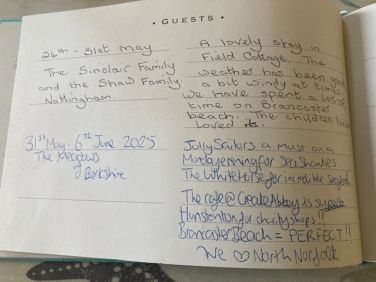 • GUESTS •
24th - 31st May
The Sinclair Family
and the Shaw Family
Nottingham.
A lovely stay in
Field Cottage. The
weather has been good
a bit windy at times
we have spent a lot of
time on Brancaster
beach. The children have
loved it.
31st May - 6th June 2025
The
Berkshire
Jolly Sailors a must on a
Monday evening for Sea Shanties.
The White Horse for incredible seafood.
The cafe @ Creake Abbey is superb
Hunstanton for charity shops!!
Brancaster Beach = PERFECT!!
We ♡ North Norfolk